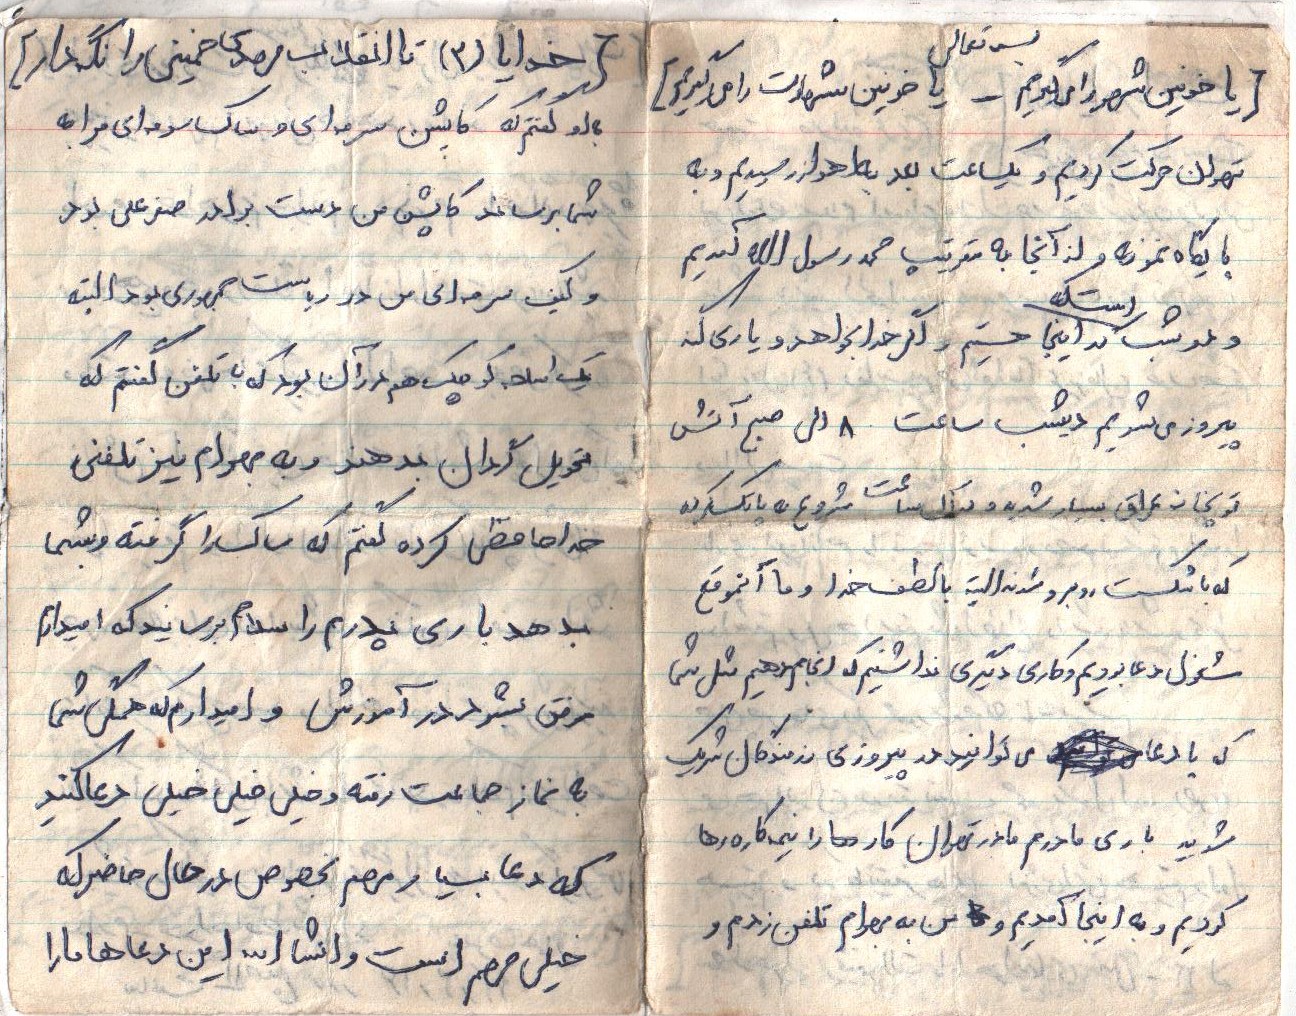 بسمه تعالی
[یا خونین شهر را می گیریم – یا خونین شهادت را می گیریم]
تهران حرکت کردیم و یکساعت بعد به اهواز رسیدیم و به
پایگاه نمونه و از آنجا به مقر تیپ محمد رسول الله آمدیم
و دو شب است که اینجا هستیم و اگر خدا بخواهد و یاری کند
پیروز می شویم دیشب ساعت ۸ الی صبح آتش
توپخانه عراق بسیار شدید و ساعت شروع به پاتک کرده
که با شکست روبرو شدند البته با لطف خدا و ما آنموقع
مشغول دعا بودیم و کاری دیگری نداشتیم که انجام دهیم مثل شما
که با دعا می توانید در پیروزی رزمندگان شریک
شوید باری مادرم ما در تهران کارها را نیمه کاره رها
کردیم و به اینجا آمدیم و من به بهرام تلفن زدم و
[خدایا (۳) تا انقلاب مهدی خمینی را نگهدار]
باو گفتم که کاپشن سرمه ای و ساک سرمه ای مرا به
شما برساند کاپشن من دست برادر صفرعلی بود
و کیف سرمه ای من در ریاست جمهوری بود البته
یک اسلحه کوچک هم در آن بود که با تلفن گفتم که
تحویل گردان بدهند و به بهرام نیز تلفنی
خداحافظی کرده گفتم که ساک را گرفته و بشما
بدهد باری پدرم را سلام برسانید که امیدارم
موفق بشود در آموزش و امیدارم که همگی شما
به نماز جماعت رفته و خیلی خیلی خیلی دعا کنید
که دعا بسیار مهم بخصوص در حال حاضر که
خیلی مهم است و انشااله این دعاها ما را